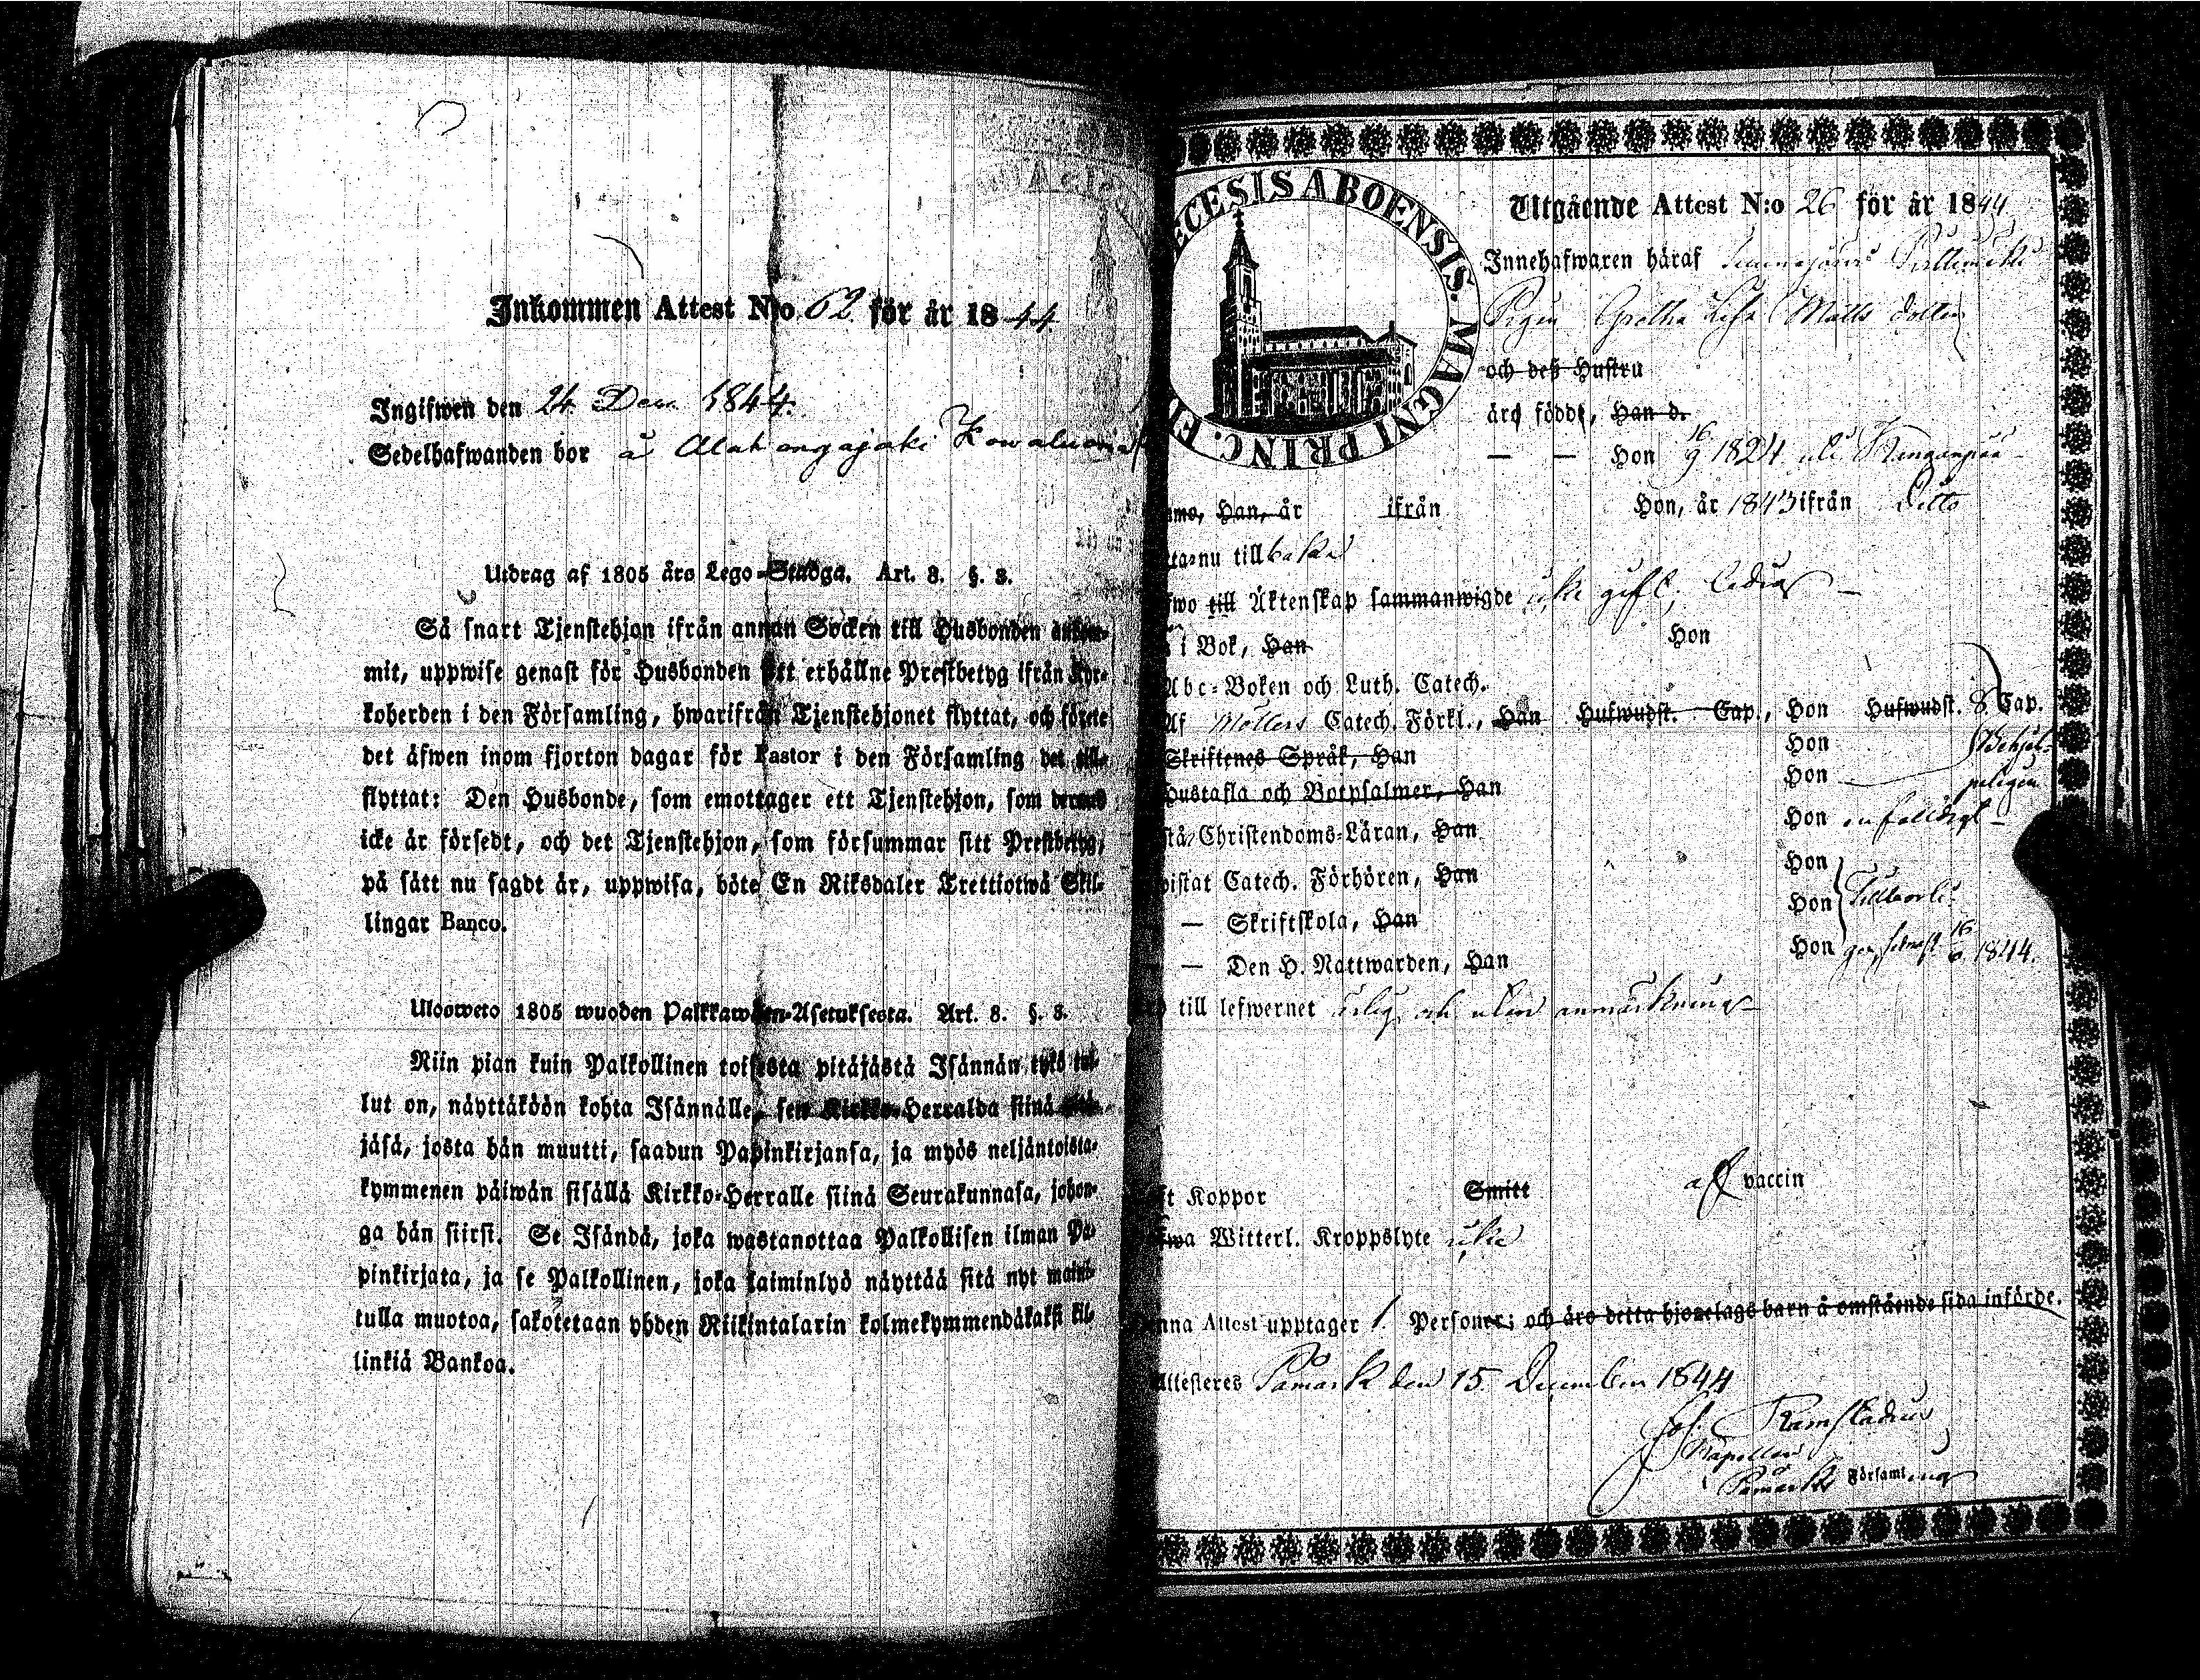 Inkommen Attest N:o 62 för år 1844
Ingifwen den 24 Dec. 1844.
Sedelhafwanden bor å Alahongajoki
Utdrag af 1805 års Lego-Stadga. Art. 8. §. 8.
Så snart Tjenstehjon ifrån annan Socken till Husbonden ankom-
mit, uppwise genast för Husbonden sitt erhållne Prestbetyg ifrån Kyr-
koherden i den Församling, hwarifrån Tjenstehjonet flyttat, och förete
det äfwen inom fjorton dagar för Pastor i den Församling det till-
flyttat: Den Husbonde, som emottager ett Tjenstehjon, som dermed
icke är försedt, och det Tjenstehjon, som försummar sitt Prestbetyg,
på sätt nu sagdt är, uppwisa, böte En Riksdaler Trettiotwå Skil-
lingar Banco.
Ulosweto 1805 wuoden Palkkawäen-Asetuksesta. Art. 8. §. 8.
Niin pian kuin Palkollinen toisesta pitäjästä Isännän tykö tul-
lut on, näyttäköön kohta Isännälle, sen Kirkko-Herralda siinä pitä-
jäsä, josta hän muutti, saadun Papinkirjansa, ja myös neljäntoista-
kymmenen päiwän sisällä Kirkko-Herralle siinä Seurakunnasa, johon-
ga hän siirsi. Se Isändä, joka wastanottaa Palkollisen ilman Pa-
pinkirjata, ja se Palkollinen, joka laiminlyö näyttää sitä nyt mainit-
tulla muotoa, sakotetaan yhden Riikintalarin kolmekymmendäkaksi kil-
linkiä Bankoa.
ECESIS ABOENSIS. MAGNI PRINC. FI
Utgående Attest N:o 26 för år 1844
Innehafwaren häraf
Pigan Gretha Lisa Matts dotter
och deß Hustru
äro födde, Han d.
— — Hon 16/9 1824
Han, år ifrån Hon, år 1843 ifrån Ditto
nu tillbaka
till Äktenskap sammanwigde icke gift, ledig —
i Bok, Han Hon
Abc-Boken och Luth. Catech.
Af Möllers Catech. Förkl., Han Hufwudst. Cap., Hon Hufwudst. 8 Cap.
Skriftenes Språk, Han Hon Behjel-
Hustafla och Botpsalmer, Han Hon peligen
Christendoms-Läran, Han Hon enfaldigt —
Catech. Förhören, Han Hon
— Skriftskola, Han Hon Tillbörli-
— Den H. Nattwarden, Han Hon gen, senast 16/6 1844.
till lefwernet ärlig och utan anmärkning —
Koppor Smitt af vaccin
Witterl. Kroppslyte icke
Denna Attest upptager 1. Personer; och äro detta hjonelags barn å omstående sida införde.
Attesteres Påmark den 15. December 1844
Joh. Ramstadius
Kapellan
Påmarks Församling